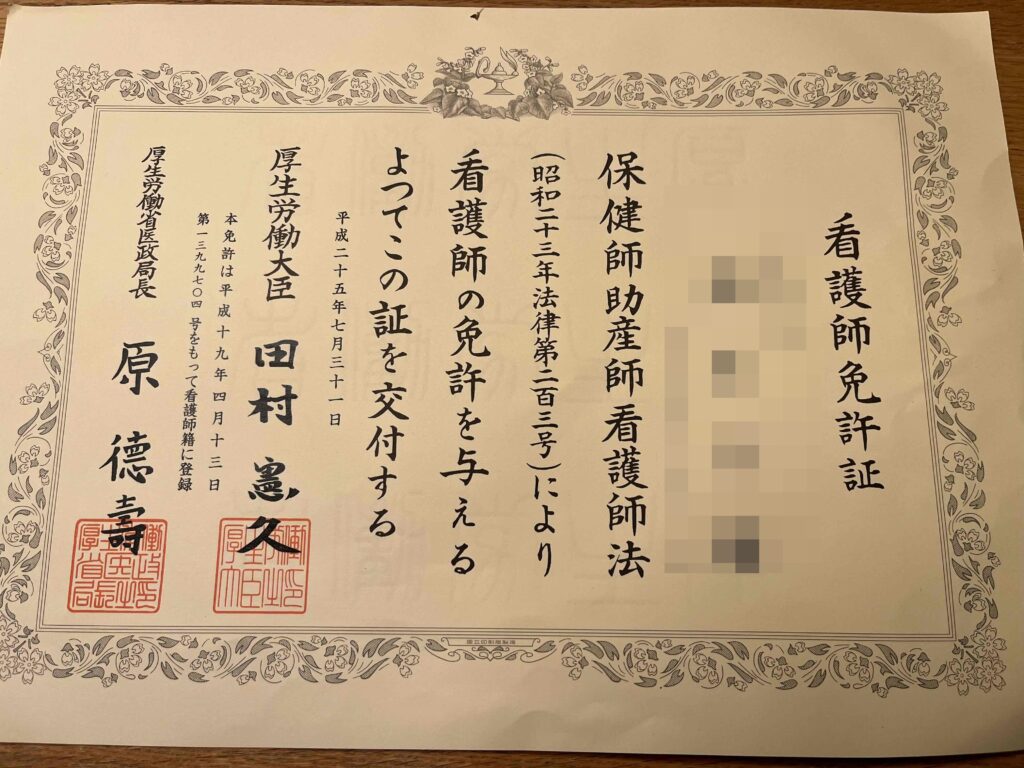 看護師免許証
保健師助産師看護師法
(昭和二十三年法律第二百三号)により
看護師の免許を与える
よつてこの証を交付する
平成二十五年七月三十一日
厚生労働大臣 田村憲久
本免許は平成十九年四月十三日
第一三九九七〇四号をもって看護師籍に登録
厚生労働省医政局長 原 德壽